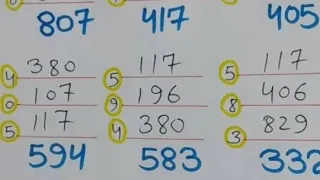 807 417 405
4 380 5 117 5 117
0 107 9 196 8 406
5 117 4 380 3 829
594 583 332